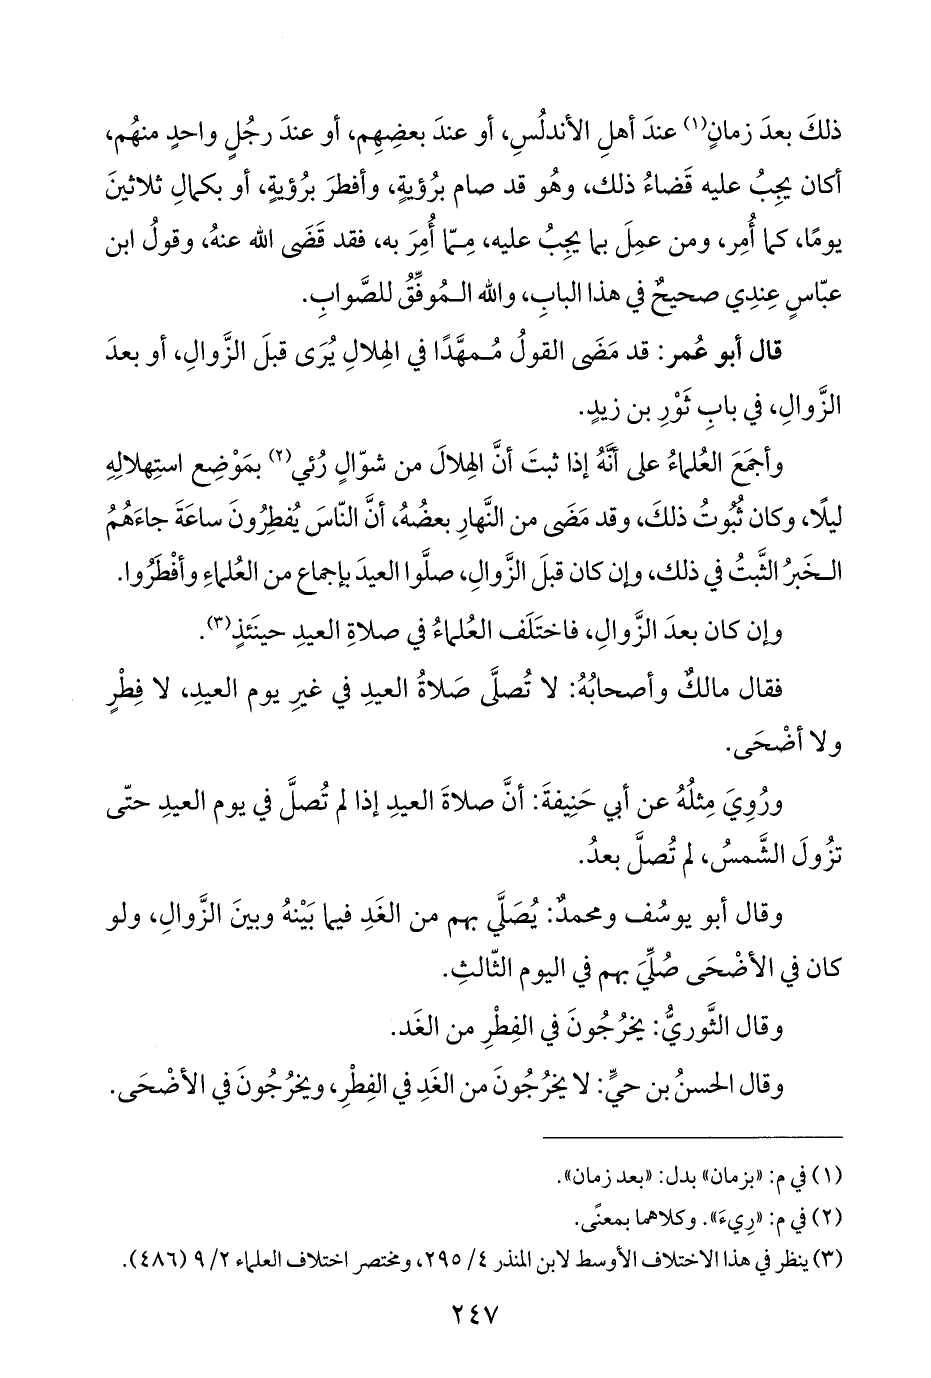 ذلكَ بعدَ زمانٍ(١) عندَ أهلِ الأندلُسِ، أو عندَ بعضِهِم، أو عندَ رجُلٍ واحدٍ منهُم،
أكان يجِبُ عليه قَضاءُ ذلك، وهُو قد صام برُؤيةٍ، وأفطرَ برُؤيةٍ، أو بكمالِ ثلاثينَ
يومًا، كما أُمِر، ومن عمِلَ بما يجِبُ عليه، مِمّا أُمِرَ به، فقد قَضَى الله عنهُ، وقولُ ابن
عبّاسٍ عِندِي صحيحٌ في هذا البابِ، والله المُوفِّقُ للصَّوابِ.
قال أبو عُمر: قد مَضَى القولُ مُمهَّدًا في الهِلالِ يُرَى قبلَ الزَّوالِ، أو بعدَ
الزَّوالِ، في بابِ ثَوْرِ بن زيدٍ.
وأجمَعَ العُلماءُ على أنَّهُ إذا ثبتَ أنَّ الهِلالَ من شوّالٍ رُئي(٢) بمَوْضِع استِهلالِهِ
ليلًا، وكان ثُبُوتُ ذلكَ، وقد مَضَى من النَّهارِ بعضُهُ، أنَّ النّاسَ يُفطِرُونَ ساعَةَ جاءَهُمُ
الخبرُ الثَّبتُ في ذلك، وإن كان قبلَ الزَّوالِ، صلَّوا العيدَ بإجماع من العُلماءِ وأفْطَرُوا.
وإن كان بعدَ الزَّوالِ، فاختَلَف العُلماءُ في صلاةِ العيدِ حينَئذٍ(٣).
فقال مالكٌ وأصحابُهُ: لا تُصلَّى صَلاةُ العيدِ في غيرِ يوم العيدِ، لا فِطْرٍ
ولا أضْحَى.
ورُوِيَ مِثلُهُ عن أبي حَنِيفةَ: أنَّ صلاةَ العيدِ إذا لم تُصلَّ في يوم العيدِ حتّى
تزُولَ الشَّمسُ، لم تُصلَّ بعدُ.
وقال أبو يوسُف ومحمدٌ: يُصَلَّي بهم من الغَدِ فيما بَيْنهُ وبينَ الزَّوالِ، ولو
كان في الأضْحَى صُلِّيَ بهم في اليوم الثّالثِ.
وقال الثَّوريُّ: يخرُجُونَ في الفِطْرِ من الغَد.
وقال الحسنُ بن حيٍّ: لا يخرُجُونَ من الغَدِ في الفِطْرِ، ويخرُجُونَ في الأضْحَى.
(١) في م: «بزمان» بدل: «بعد زمان».
(٢) في م: «رِيءَ». وكلاهما بمعنًى.
(٣) ينظر في هذا الاختلاف الأوسط لابن المنذر ٤/ ٢٩٥، ومختصر اختلاف العلماء ٢/ ٩ (٤٨٦).
٢٤٧